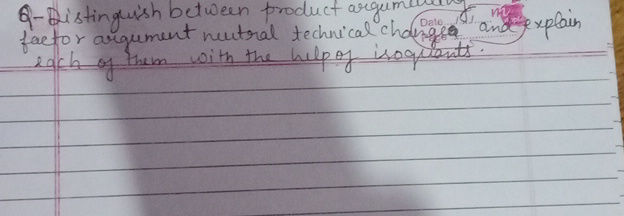 Q- Distinguish between product argumenting
factor argument neutral technical changes and explain
Date
each of them with the help of isoquants.